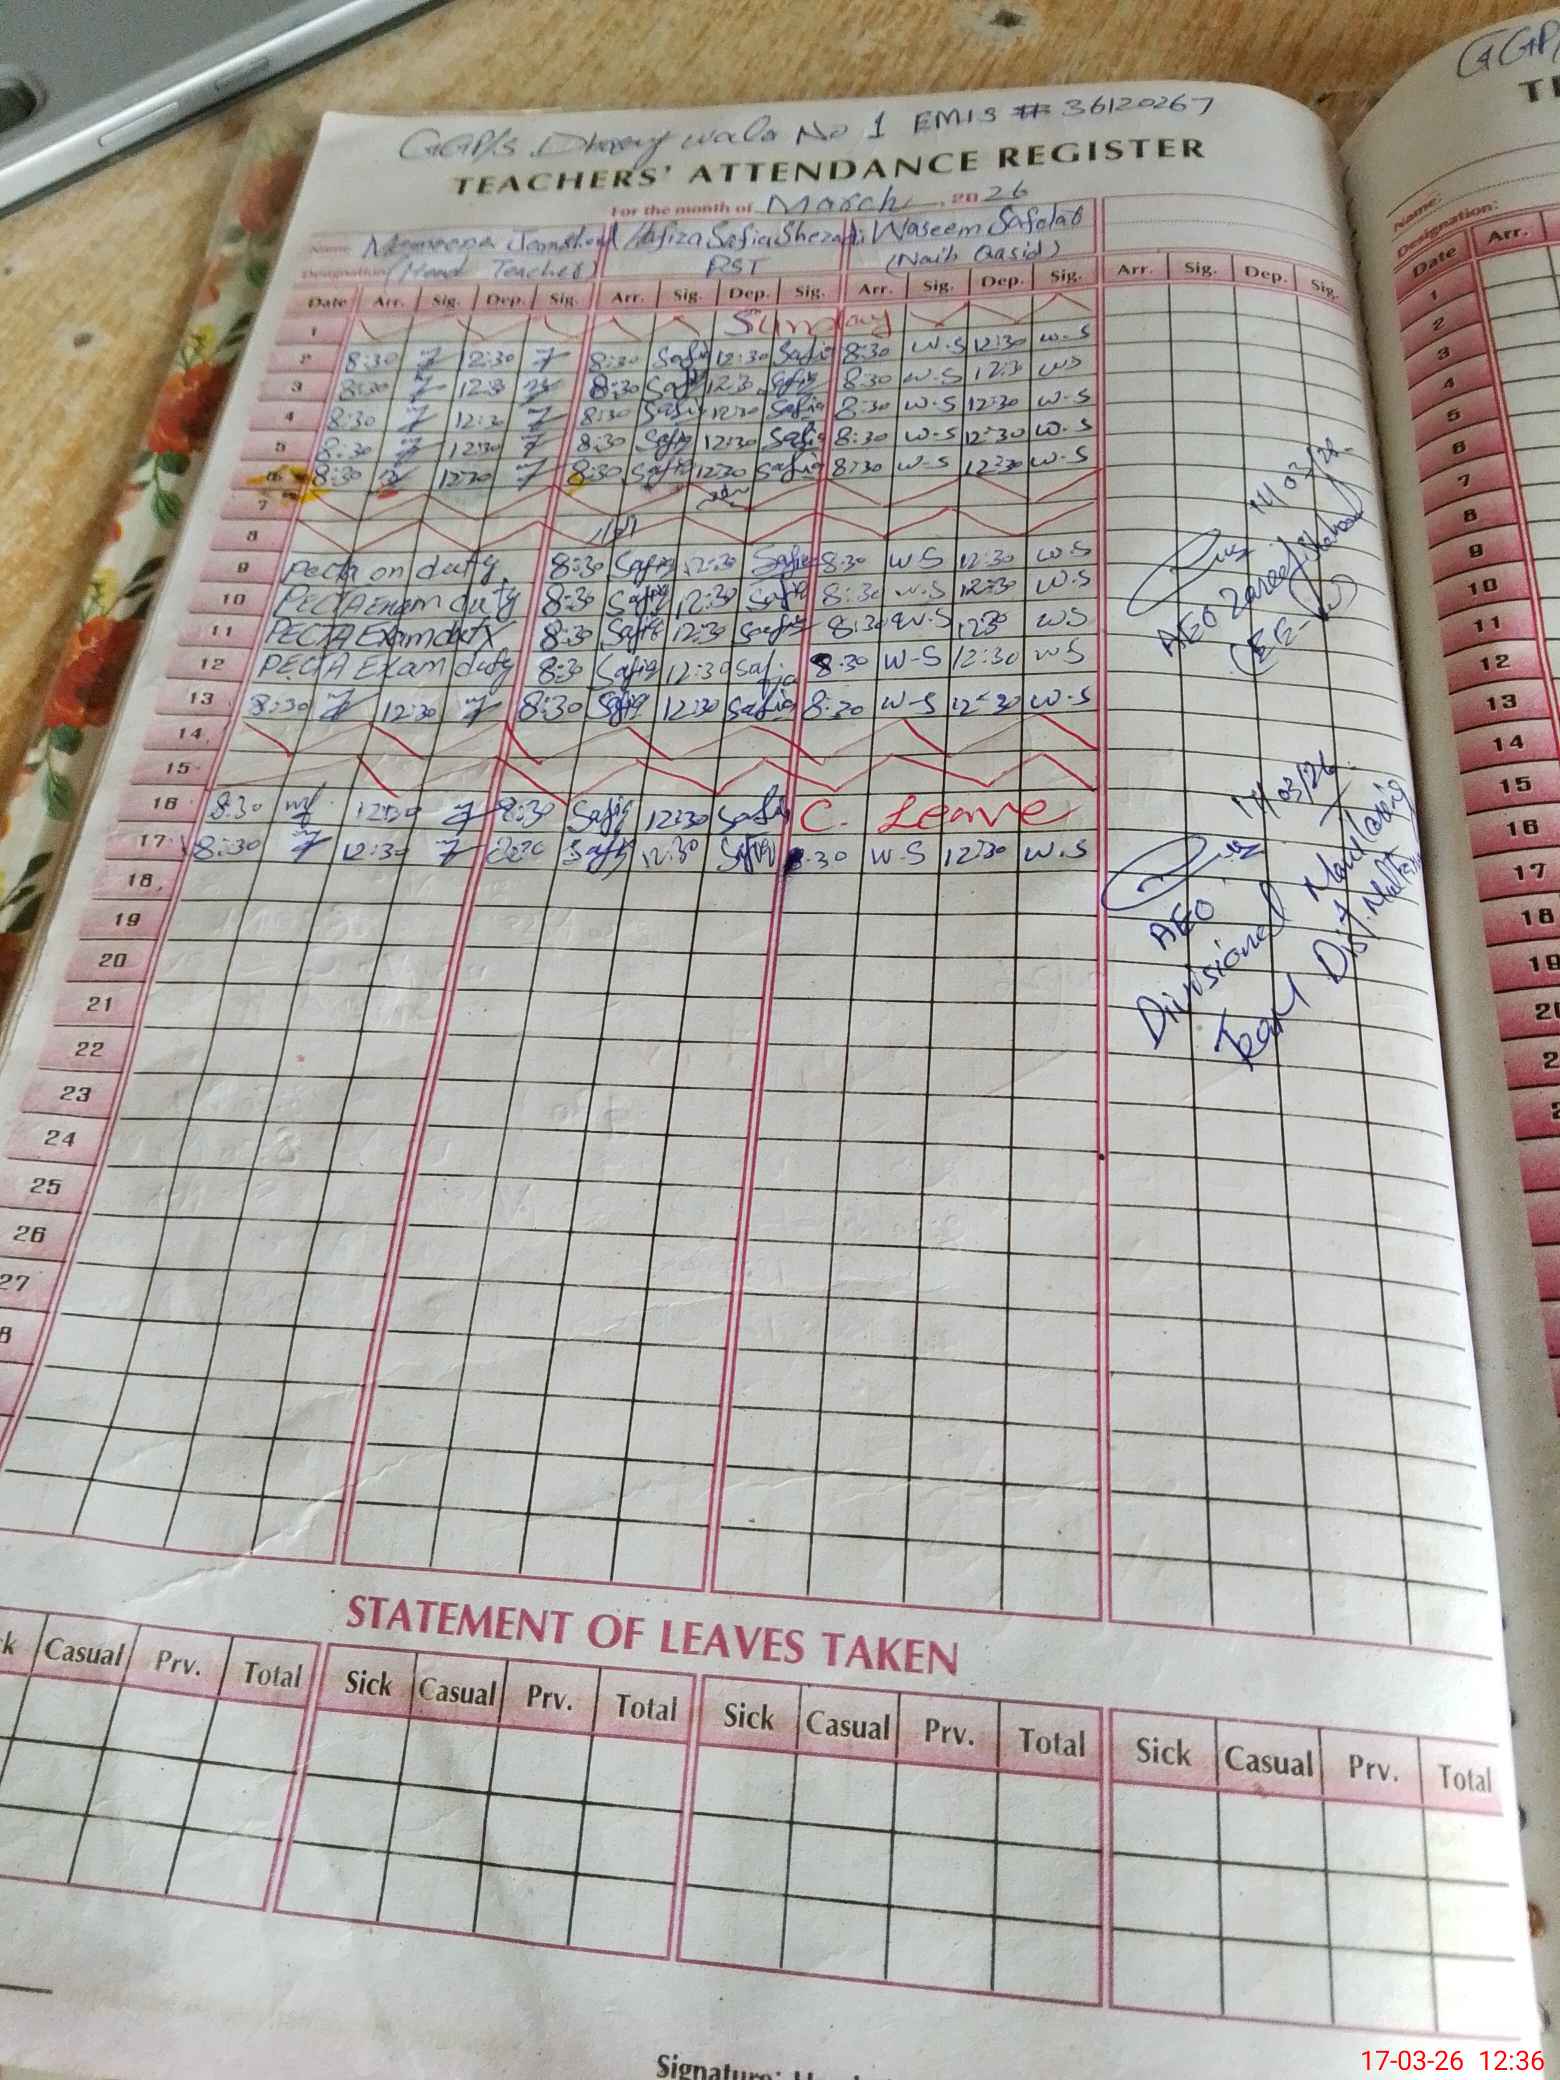 No 1 EMIS # 36120267
TEACHERS' ATTENDANCE REGISTER
For the month of March, 2026
Name Hafiza Safia Shezadi Waseem
Designation (Head Teacher) PST (Naib Qasid)
Date Arr. Sig. Dep. Sig. Arr. Sig. Dep. Sig. Arr. Sig. Dep. Sig. Arr. Sig. Dep. Sig.
1 Sunday
2 8:30 12:30 8:30 Safia 12:30 Safia 8:30 W.S 12:30 W.S
3 8:30 12:30 8:30 Safia 12:30 Safia 8:30 W.S 12:30 WS
4 8:30 12:30 8:30 Safia 12:30 Safia 8:30 W.S 12:30 W.S
5 8:30 12:30 8:30 Safia 12:30 Safia 8:30 W-S 12:30 W.S
6 8:30 12:30 8:30 Safia 12:30 Safia 8:30 W-S 12:30 W.S
7
8
9 Pecta on duty 8:30 Safia 12:30 Safia 8:30 W S 12:30 W.S
10 PECTA Exam duty 8:30 Safia 12:30 Safia 8:30 W.S 12:30 W.S
11 PECTA Exam duty 8:30 Safia 12:30 Safia 8:30 W.S 12:30 WS
12 PECTA Exam duty 8:30 Safia 12:30 Safia 8:30 W-S 12:30 WS
13 8:30 12:30 8:30 Safia 12:30 Safia 8:30 W-S 12:30 W.S
14
15
16 8:30 12:30 8:30 Safia 12:30 Safia C. Leave
17 8:30 12:30 Safia 12:30 Safia 8:30 W-S 12:30 W.S
18
19
20
21
22
23
24
25
26
27
8
AEO
AEO
Divisional Monitoring
Team Dist. Multan
STATEMENT OF LEAVES TAKEN
k Casual Prv. Total Sick Casual Prv. Total Sick Casual Prv. Total Sick Casual Prv. Total
Signature:
Name:
Designation:
Date Arr.
1
2
3
4
5
6
7
8
9
10
11
12
13
14
15
16
17
18
19
17-03-26 12:36